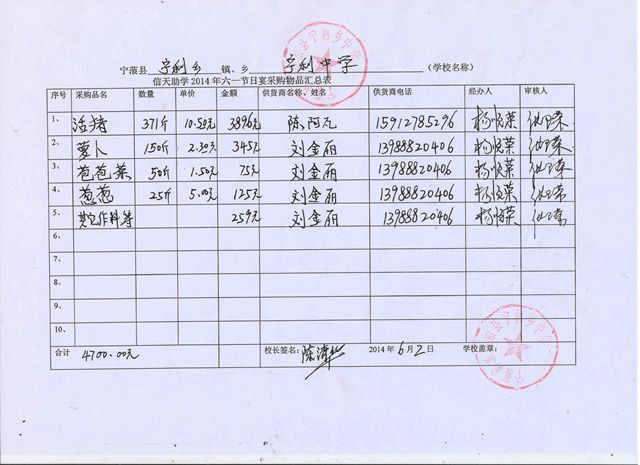 宁蒗县 宁利乡 镇、乡 宁利中学 (学校名称)
信天助学2014年六一节日宴采购物品汇总表
序号 采购品名 数量 单价 金额 供货商名称、姓名 供货商电话 经办人 审核人
1、 活猪 371斤 10.50元 3896元 陈阿瓦 15912785296
2、 萝卜 150斤 2.30元 345元 刘金丽 13988820406
3、 苞苞菜 50斤 1.50元 75元 刘金丽 13988820406
4、 葱葱 25斤 5.00元 125元 刘金丽 13988820406
5、 其它作料等 259元 刘金丽 13988820406
6、
7、
8、
9、
10、
合计 4700.00元 校长签名: 2014年6月2日 学校盖章: